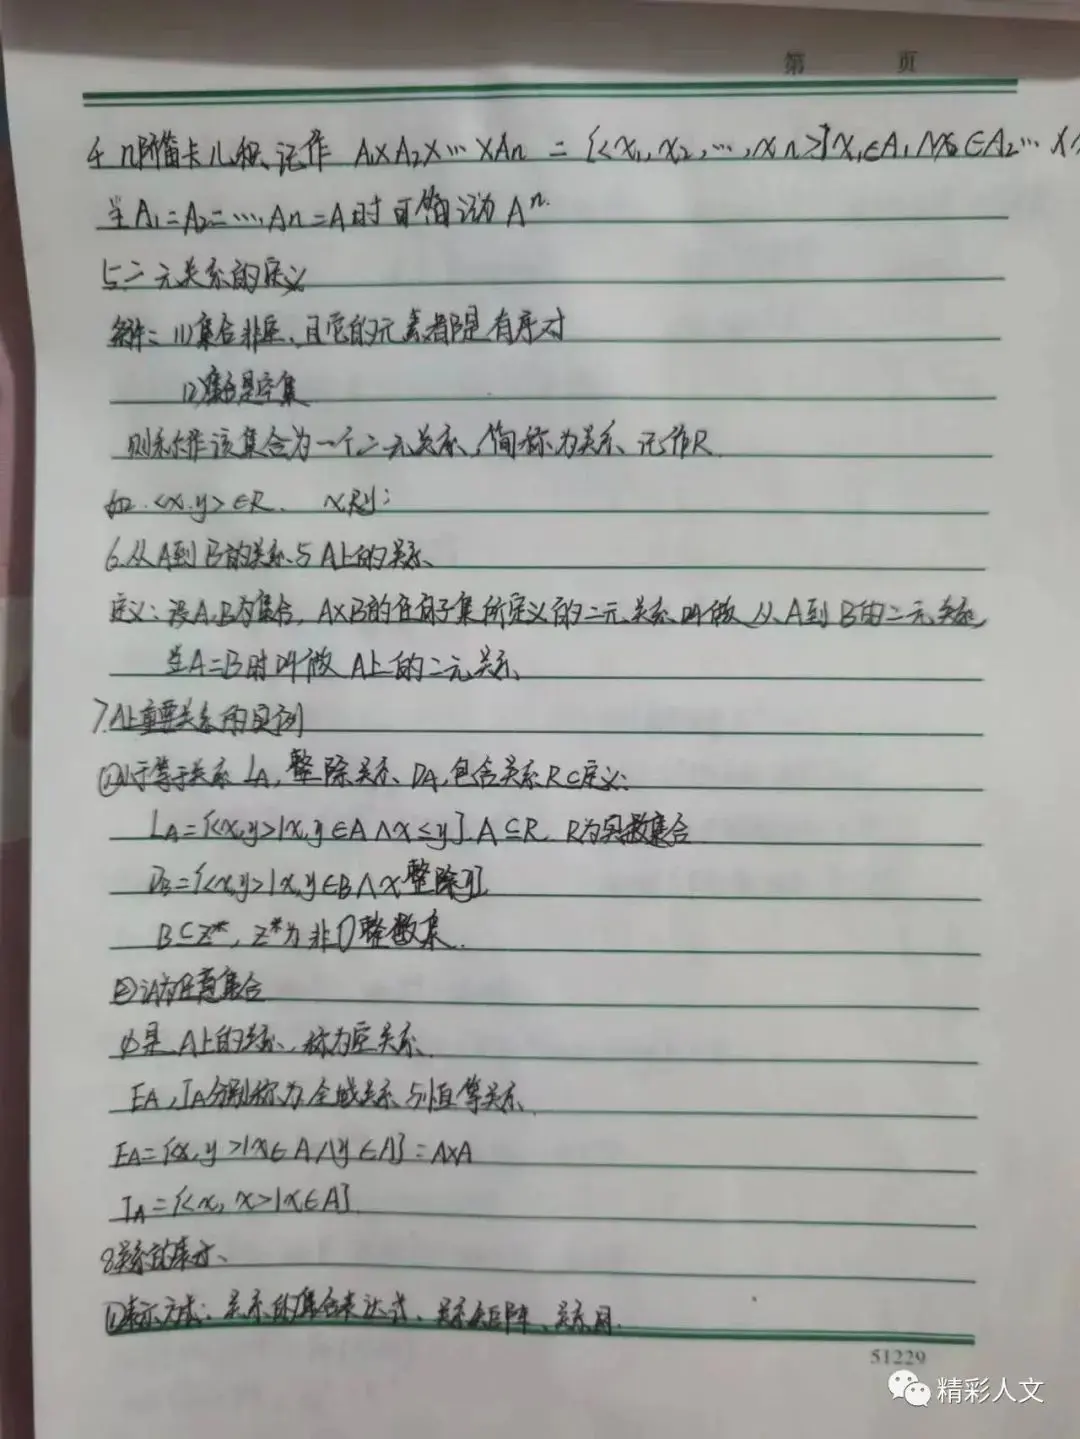 第 页
4. n阶笛卡儿积、记作 A₁×A₂×…×An = {<x₁, x₂, …, xn>|x₁∈A₁∧x₂∈A₂…
当A₁=A₂=…,An=A时可简记为Aⁿ.
5.二元关系的定义
条件: (1)集合非空、且它的元素都是有序对
(2)集合是空集
则称作该集合为一个二元关系、简称为关系、记作R
如.<x.y>∈R. xRy;
6.从A到B的关系与A上的关系、
定义:设A.B为集合, A×B的任何子集所定义的二元关系叫做从A到B的二元关系,
当A=B时叫做 A上的二元关系、
7.A上重要关系的实例
①小于等于关系 LA, 整除关系、DA,包含关系R⊆定义:
LA={<x,y>|x,y∈A∧x≤y}.A⊆R. R为实数集合
DB={<x,y>|x,y∈B∧x整除y}
B⊆Z*, Z*为非0整数集.
②设A为任意集合
∅是A上的关系、称为空关系、
EA,IA分别称为全域关系与恒等关系、
EA={<x,y>|x∈A∧y∈A}=A×A
IA={<x,x>|x∈A}
8关系的表示、
①表示方法: 关系的集合表达式、关系矩阵、关系图.
51229
精彩人文